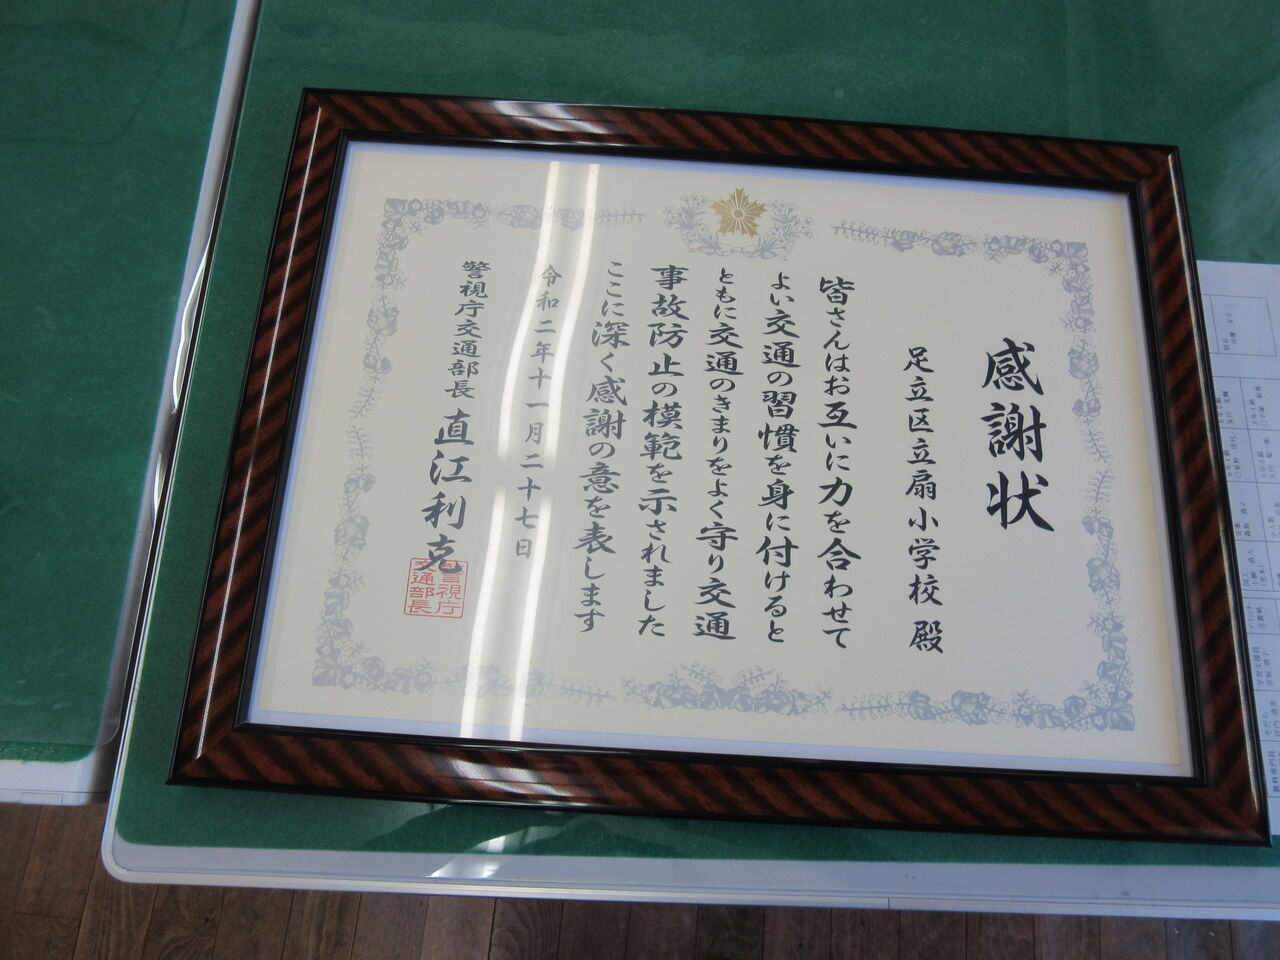 感謝状
足立区立扇小学校殿
皆さんはお互いに力を合わせて
よい交通の習慣を身に付けると
ともに交通のきまりをよく守り交通
事故防止の模範を示されました
ここに深く感謝の意を表します
令和二年十一月二十七日
警視庁交通部長 直江利克
警視庁
交通部長